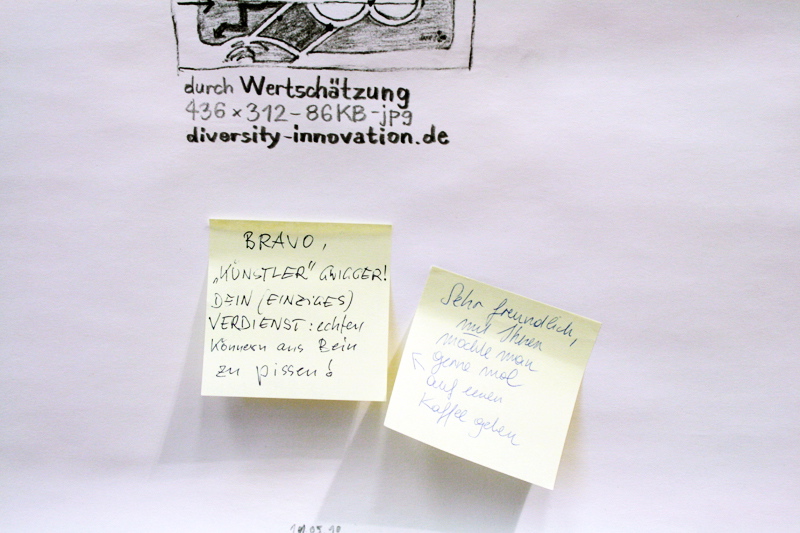 durch Wertschätzung
436 × 312 - 86KB - jpg
diversity-innovation.de
BRAVO,
„KÜNSTLER" GWIGGER!
DEIN (EINZIGES)
VERDIENST: echten
Könnern ans Bein
zu pissen!
Sehr freundlich,
mit Ihnen
möchte man
gerne mal
auf einen
Kaffee gehen